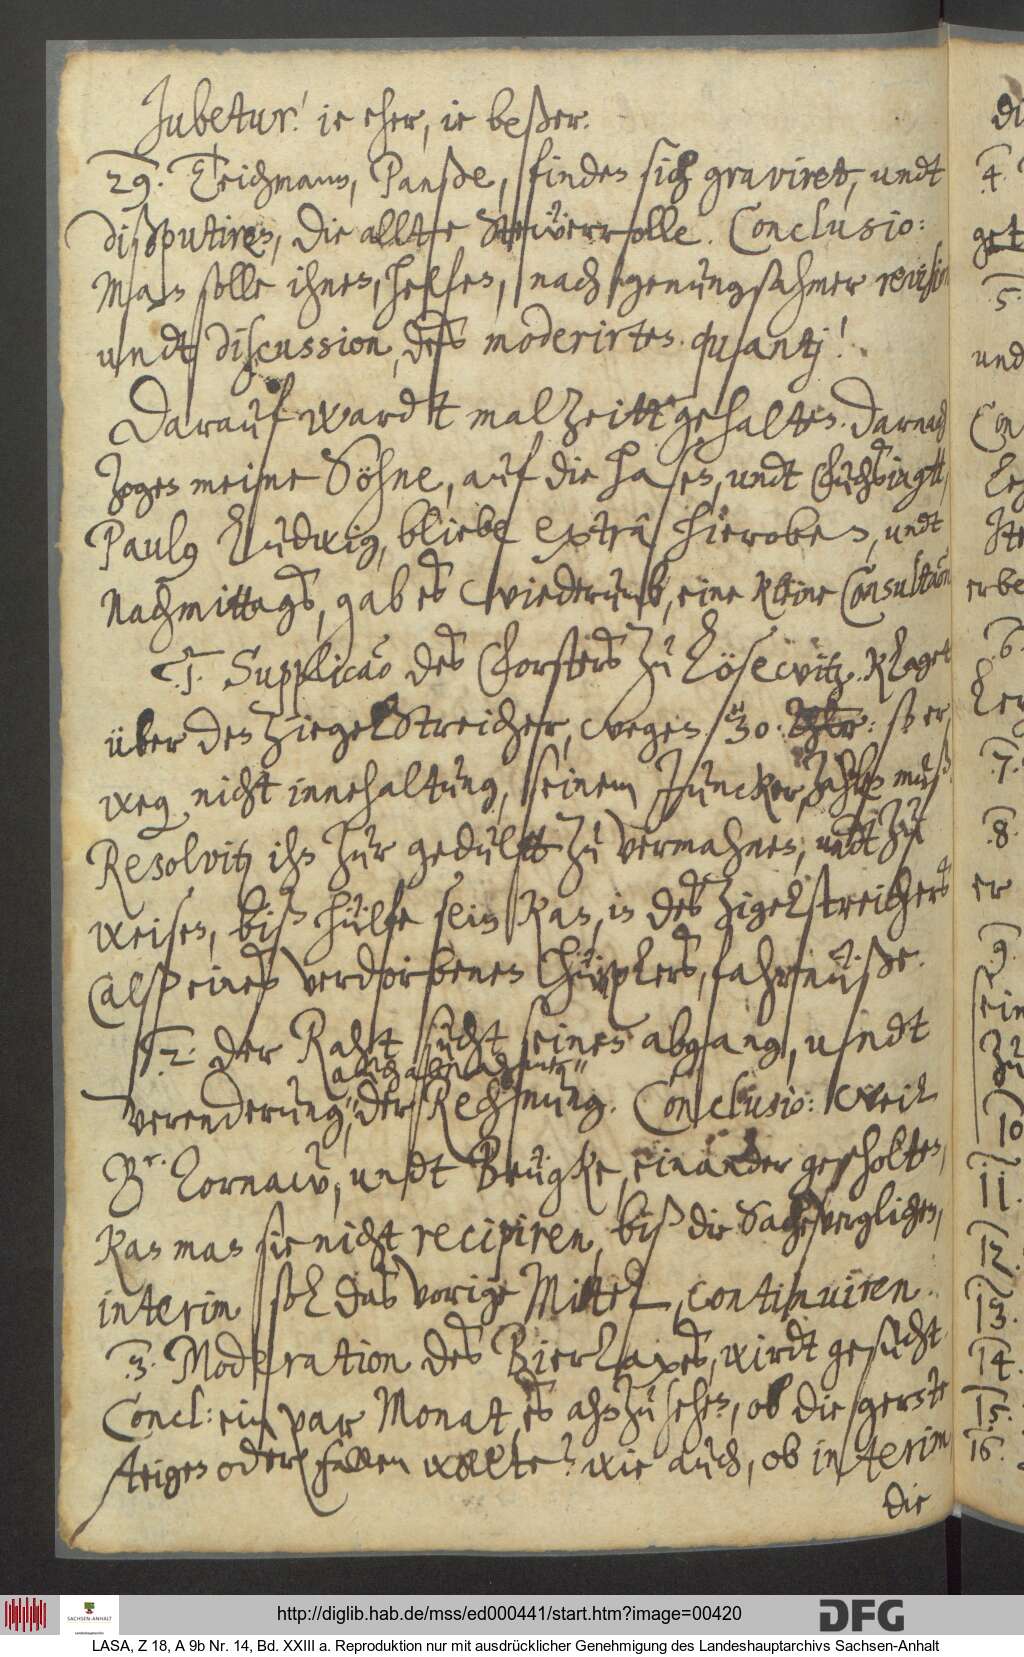 Jubetur! ie eher, ie beßer.
29. Teichmann, Banße, finden sich graviret, undt
disputiren, die allte Steüerrolle. Conclusio:
Man solle ihnen, helfen, nach genungsahmer revision
undt discussion, des moderirten quanti!
Darauf wardt malzeitt gehalten. Darnach
zogen meine Söhne, auf die hasen, undt
Paulus Ludwig, bliebe extra hieroben, undt
Nachmittags, gab es wiederumb, eine kleine Consultation
1. Supplicatio des Försters zu Lösewitz. Klaget
über den Ziegelstreicher, wegen 30 {Thlr}: so er,
weg nicht innehaltung, seinem Juncker, zahlen muß.
Resolvitur ihn zur gedulft zu vermahnen, undt zu
weisen, biß hülfe sein kan, in des Zigelstreichers
(alß eines verdorbenen Tüpfers, fahrnüße.
2. der Raht sucht seinen abgang, undt
auch abnahme
verenderung, der Rechnung. Conclusio: Weil
Br. Lornaw, undt Brügke, einander gescholten,
kan man sie nicht recipiren, biß die Sache verglichen,
interim sol das vorige Mittel, continuiren.
3. Moderation des Bierlaxes, wirdt gesucht
Concl: ein par Monat, es ahnzusehen, ob die gerste
steigen oder fallen wollte? wie auch, ob interim
die
4.
5.
und
Con
Ite
erbe
6.
7.
8.
er
9.
sein
zu
10
11.
12.
13.
14.
15.
16.
SACHSEN-ANHALT
http://diglib.hab.de/mss/ed000441/start.htm?image=00420
DFG
LASA, Z 18, A 9b Nr. 14, Bd. XXIII a. Reproduktion nur mit ausdrücklicher Genehmigung des Landeshauptarchivs Sachsen-Anhalt